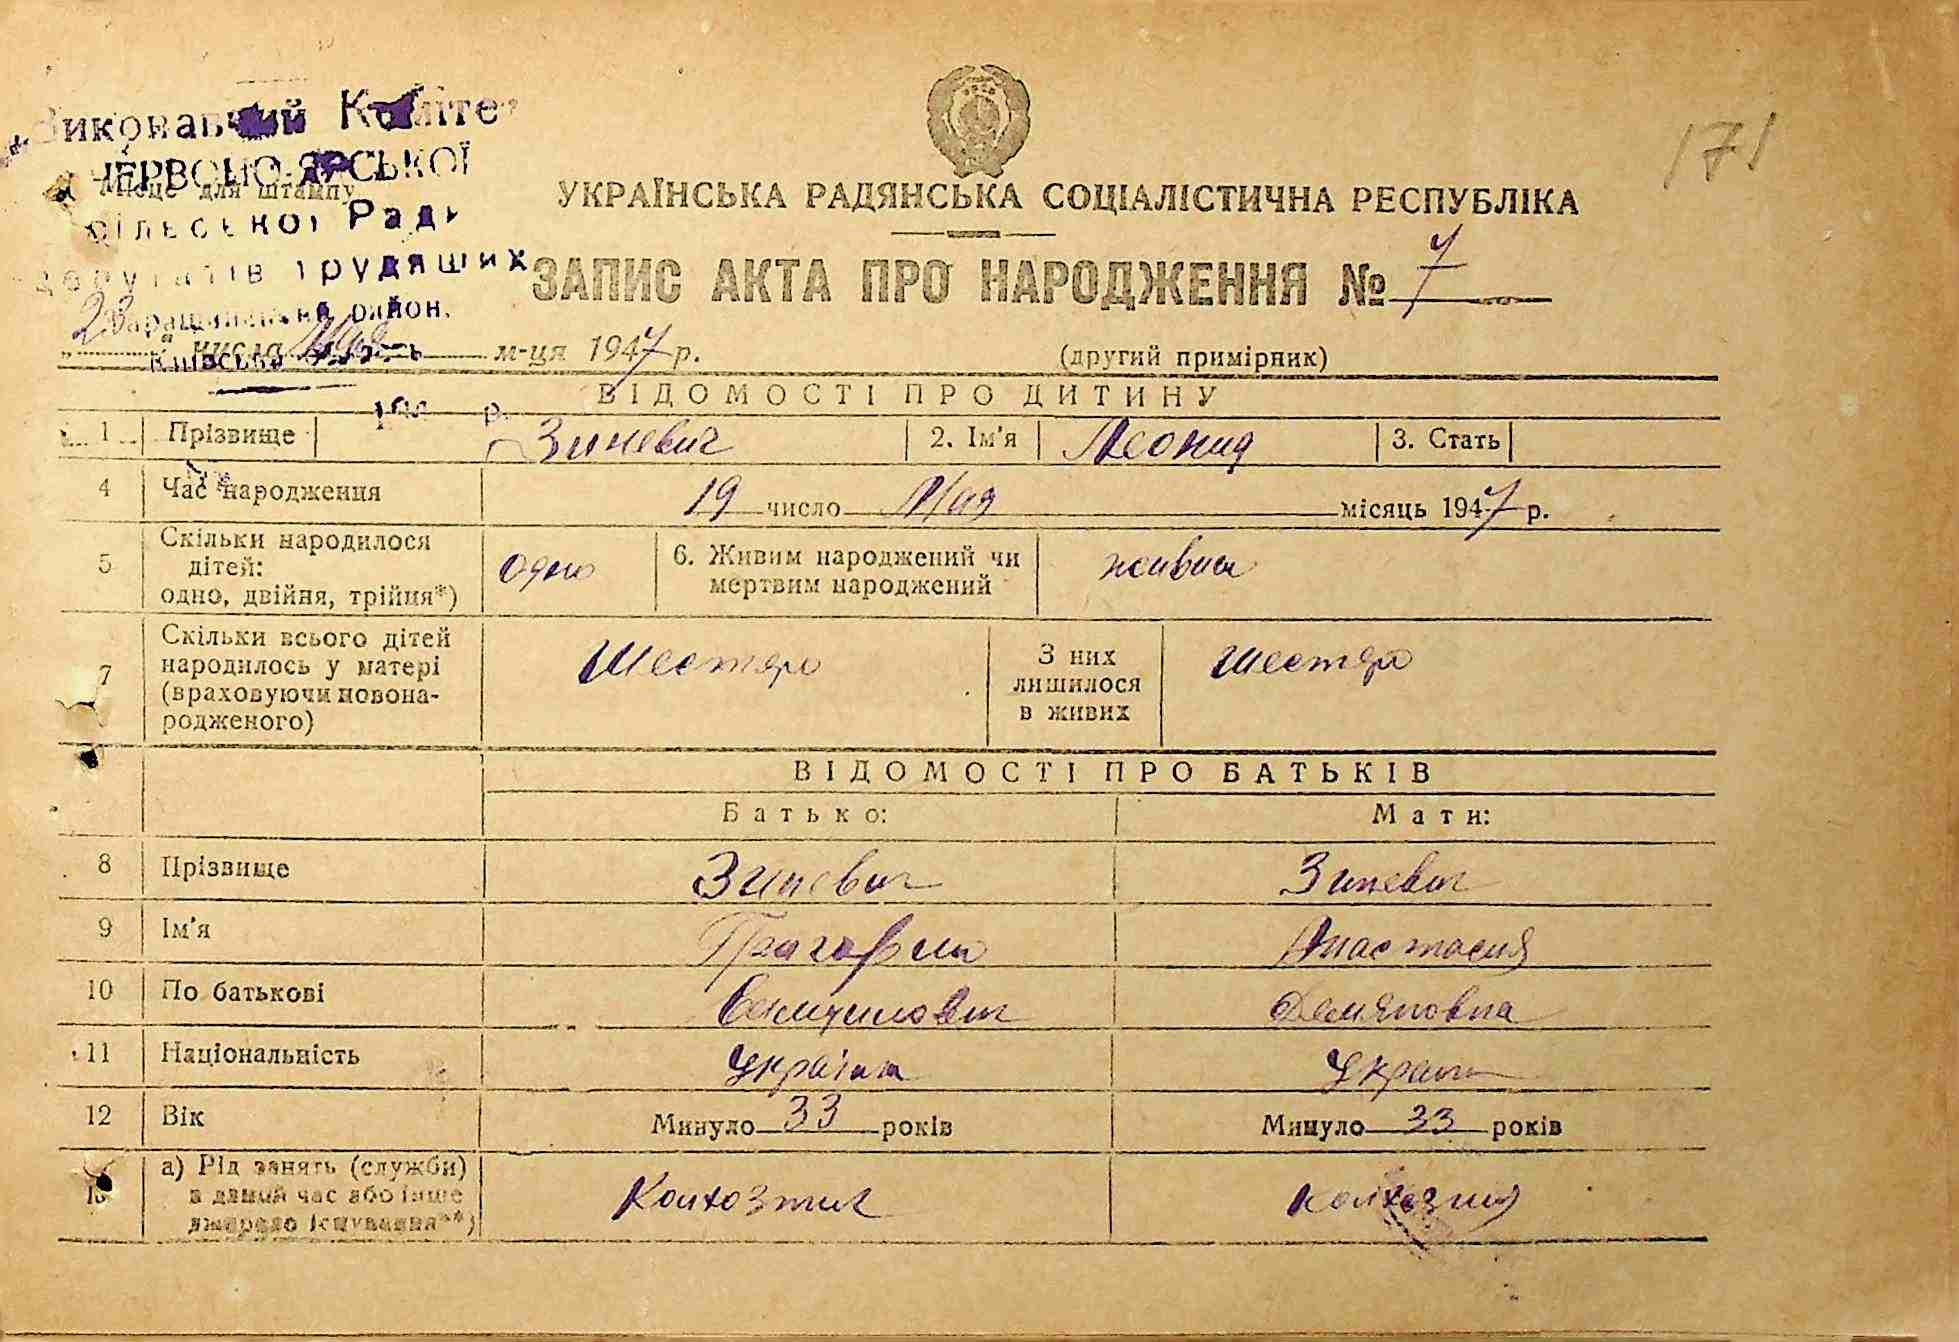 171
Виконавчий Комітет
ЧЕРВОНО-ЯРСЬКОЇ
Місце для штампу
сільської Ради
депутатів трудящих
район.
УКРАЇНСЬКА РАДЯНСЬКА СОЦІАЛІСТИЧНА РЕСПУБЛІКА
ЗАПИС АКТА ПРО НАРОДЖЕННЯ № 7
„23“ числа Мая м-ця 1947 р. (другий примірник)
Київська область
194 р.
ВІДОМОСТІ ПРО ДИТИНУ
1 Прізвище Зиневич 2. Ім'я Леонид 3. Стать
4 Час народження 19 число Мая місяць 1947 р.
5 Скільки народилося дітей: одно, двійня, трійня*) одно 6. Живим народжений чи мертвим народжений живим
7 Скільки всього дітей народилось у матері (враховуючи новонародженого) Шестеро З них лишилося в живих шестеро
ВІДОМОСТІ ПРО БАТЬКІВ
Батько: Мати:
8 Прізвище Зиневич Зиневич
9 Ім'я Григорий Анастасия
10 По батькові Демяновна
11 Національність україн. украин.
12 Вік Минуло 33 років Минуло 33 років
13 а) Рід занять (служби) в даний час або інше джерело існування**) Колхозник колхозниц